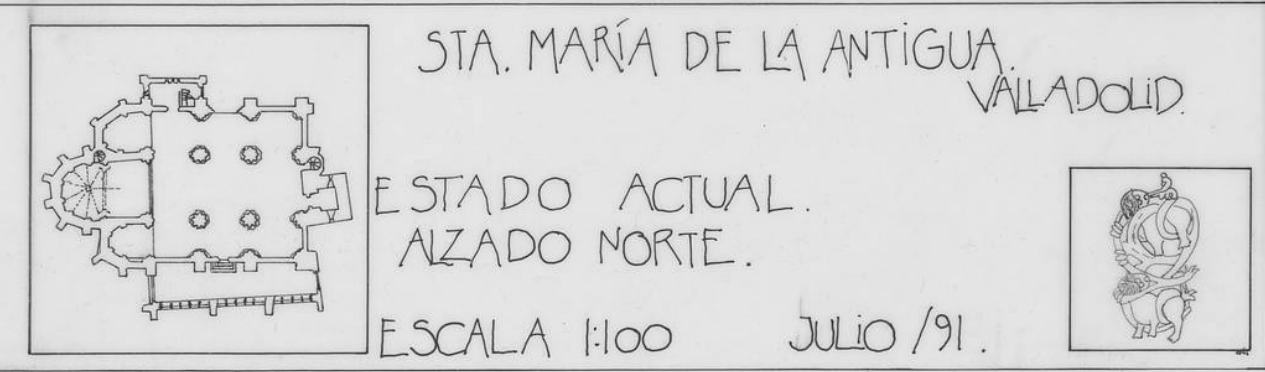 STA. MARÍA DE LA ANTIGUA.
VALLADOLID.
ESTADO ACTUAL.
ALZADO NORTE.
ESCALA 1:100 JULIO /91.